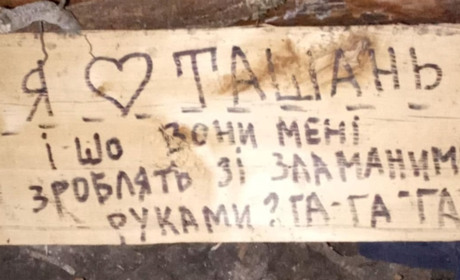 Я ♡ ТАШАНЬ
і шо вони мені
зроблять зі зламаним
руками? ГА-ГА-ГА